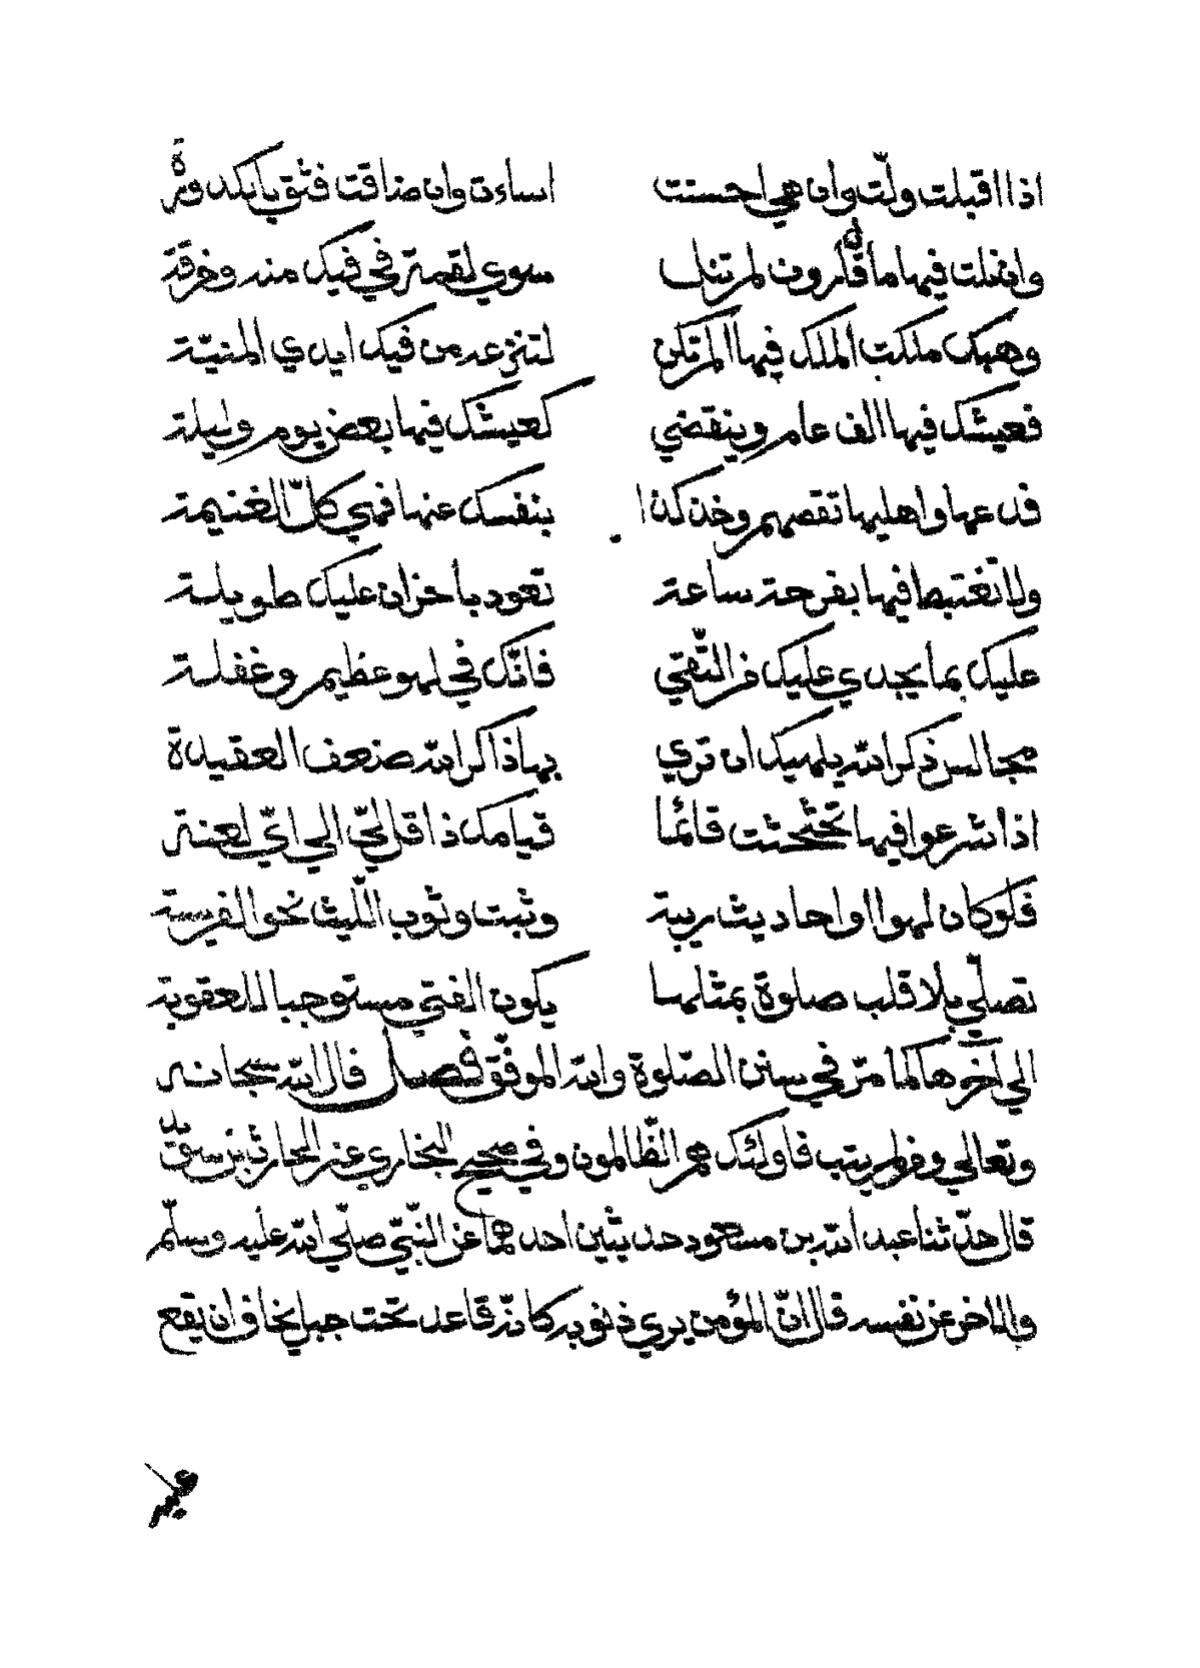 اذا اقبلت ولّت وان هي احسنت اساءت وان ضاقت فثق بالكدورة
وان نلت فيها مال قارون لم تنل سوي لقمة في فيك منه وخرقة
وهبك ملكت الملك فيها الم تكن لتنزعه من فيك ايدي المنيّة
فعيشك فيها الف عام وينقضي كعيشك فيها بعض يوم وليلة
فدعها واهليها تقصهم وخذ كذا بنفسك عنها فهي كلّ الغنيمة
ولا تغتبط فيها بفرحة ساعة تعود باحزان عليك طويلة
عليك بما يجدي عليك من التّقي فانّك في لهو عظيم وغفلة
مجالس ذكر الله يلهيك ان تري بها ذاكر الله ضعف العقيدة
اذا شرعوا فيها تحثحثت قائما قيامك ذا قل لي الي ايّ لعنة
فلو كان لهوا او احاديث ريبة وثبت وثوب اللّيث نحو الفريسة
تصلّي بلا قلب صلوة بمثلها يكون الفتي مستوجبا للعقوبة
الي آخرها كما مرّ في سنن الصّلوة والله الموفّق فصل قال الله سبحانه
وتعالي ومن لم يتب فاولئك هم الظّالمون وفي صحيح البخاري عن الحارث بن سويد
قال حدّثنا عبد الله بن مسعود حديثين احدهما عن النّبيّ صلّي الله عليه وسلّم
والاخر عن نفسه قال انّ المؤمن يري ذنوبه كانّه قاعد تحت جبل يخاف ان يقع